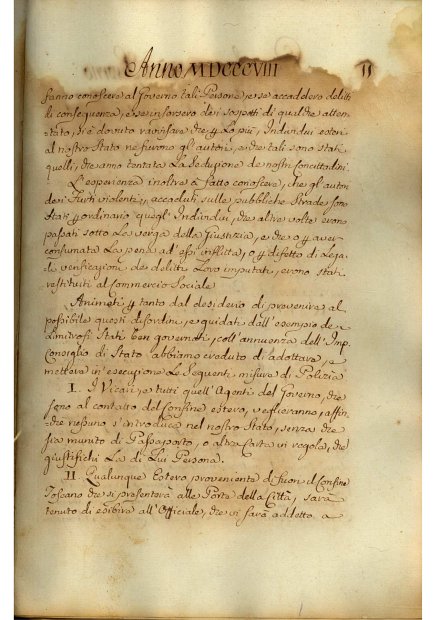 Anno MDCCCVIII 11
fanno conoscere al Governo tali Persone, e se accaddero delitti
di conseguenza, e se insorsero dei sospetti di qualche atten-
tato, si è dovuto ravvisare che p. Lo più, Individui esteri
al nostro Stato ne furono gl'autori, e che tali sono stati
quelli, che anno tentata La Seduzione de nostri Concittadini.
L'esperienza inoltre à fatto conoscere, che gl'autori
dei Furti violenti, accaduti sulle pubbliche Strade sono
Stati p. ordinario quegl'Individui, che altre volte erono
passati sotto La verga della Giustizia, e che o p. aver
consumata La pena ad essi inflitta, o p. difetto di Lega-
le verificazione dei delitti Loro imputati, erono stati
restituiti al Commercio Sociale
Animati p. tanto dal desiderio di prevenire al
possibile questi disordini, e guidati dall'esempio de i
Limitrofi Stati ben governati, coll'annuenza dell'Imp.
Consiglio di Stato abbiamo creduto di adottare, e
mettere in esecuzione Le Seguenti misure di Polizia
I. I Vicari, e tutti quell'Agenti del Governo, che
sono al contatto del Confine estero, veglieranno, affin-
che nessuno s'introduca nel nostro Stato, senza che
sia munito di Passaporto, o altra Carta in regola, che
giustifichi La di Lui Persona.
II Qualunque Estero proveniente di fuori il Confine
Toscano che si presenterà alle Porte della Città, sarà
tenuto di esibire all'Offiziale, che vi sarà addetto a